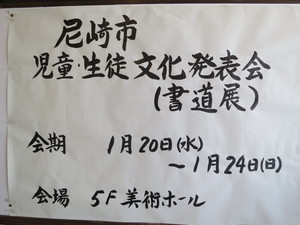 尼崎市
児童・生徒文化発表会
(書道展)
会期 1月20日(水)
～1月24日(日)
会場 5F美術ホール